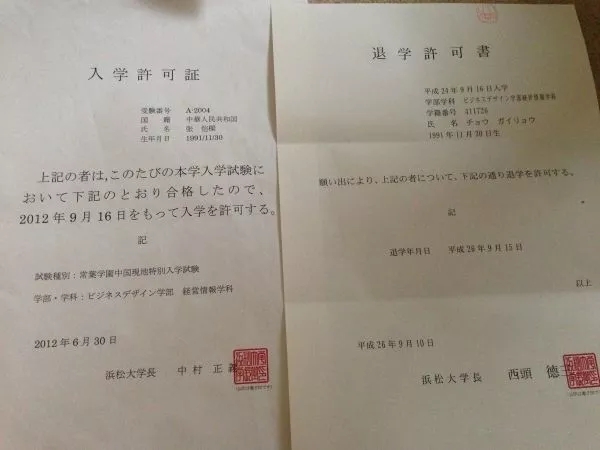 入学許可証
受験番号 A-2004
国籍 中華人民共和国
氏名 張
生年月日 1991/11/30
上記の者は,このたびの本学入学試験に
おいて下記のとおり合格したので、
2012年9月16日をもって入学を許可する。
記
試験種別:常葉学園中国現地特別入学試験
学部・学科:ビジネスデザイン学部 経営情報学科
2012年6月30日
浜松大学長 中村 正義
退学許可書
平成24年9月16日入学
学部学科 ビジネスデザイン学部経営情報学科
学籍番号 411726
氏名 チョウ ガイリョウ
1991年11月30日生
願い出により、上記の者について、下記の通り退学を許可する。
記
退学年月日 平成26年9月15日
以上
平成26年9月10日
浜松大学長 西頭 德三